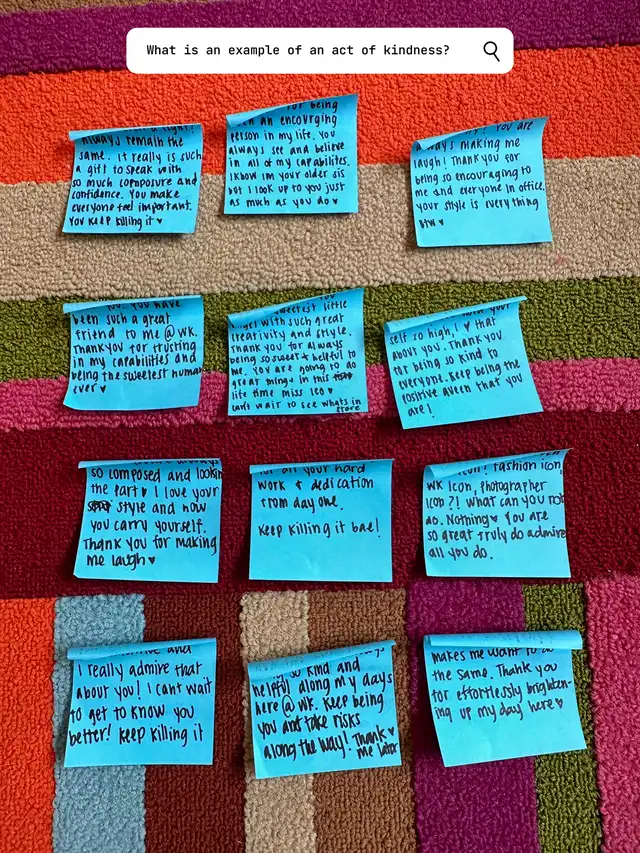 What is an example of an act of kindness?
always remain the
same. It really is such
a gift to speak with
so much composure and
confidence. You make
everyone feel important.
You keep killing it ♥
for being
an encourging
person in my life. You
always see and believe
in all of my capabilites.
I know im your older sis
but I look up to you just
as much as you do ♥
You are
always making me
laugh! Thank you for
being so encouraging to
me and everyone in office.
your style is everything
btw ♥
You have
been such a great
friend to me @ wk.
Thank you for trusting
in my capabilities and
being the sweetest human
ever ♥
sweetest little
angel with such great
creativity and style.
Thank you for always
being so sweet + helpful to
me. You are going to do
great things in this
life time miss leo ♥
can't wait to see whats in
store
your
self so high! ♥ that
about you. Thank you
for being so kind to
everyone. Keep being the
positive queen that you
are!
always
so composed and lookin
the part ♥ I love your
style and how
you carry yourself.
Thank you for making
me laugh ♥
for all your hard
work + dedication
from day one.
Keep killing it bae!
icon! fashion icon,
WK Icon, photographer
icon?! what can you not
do. Nothing ♥ You are
so great truly do admire
all you do.
and
I really admire that
about you! I cant wait
to get to know you
better! keep killing it
so kind and
helpful along my days
here @ wk. Keep being
you and take risks
along the way! Thank ♥
me later
makes me want to do
the same. Thank you
for effortlessly brighten-
ing up my day here ♥